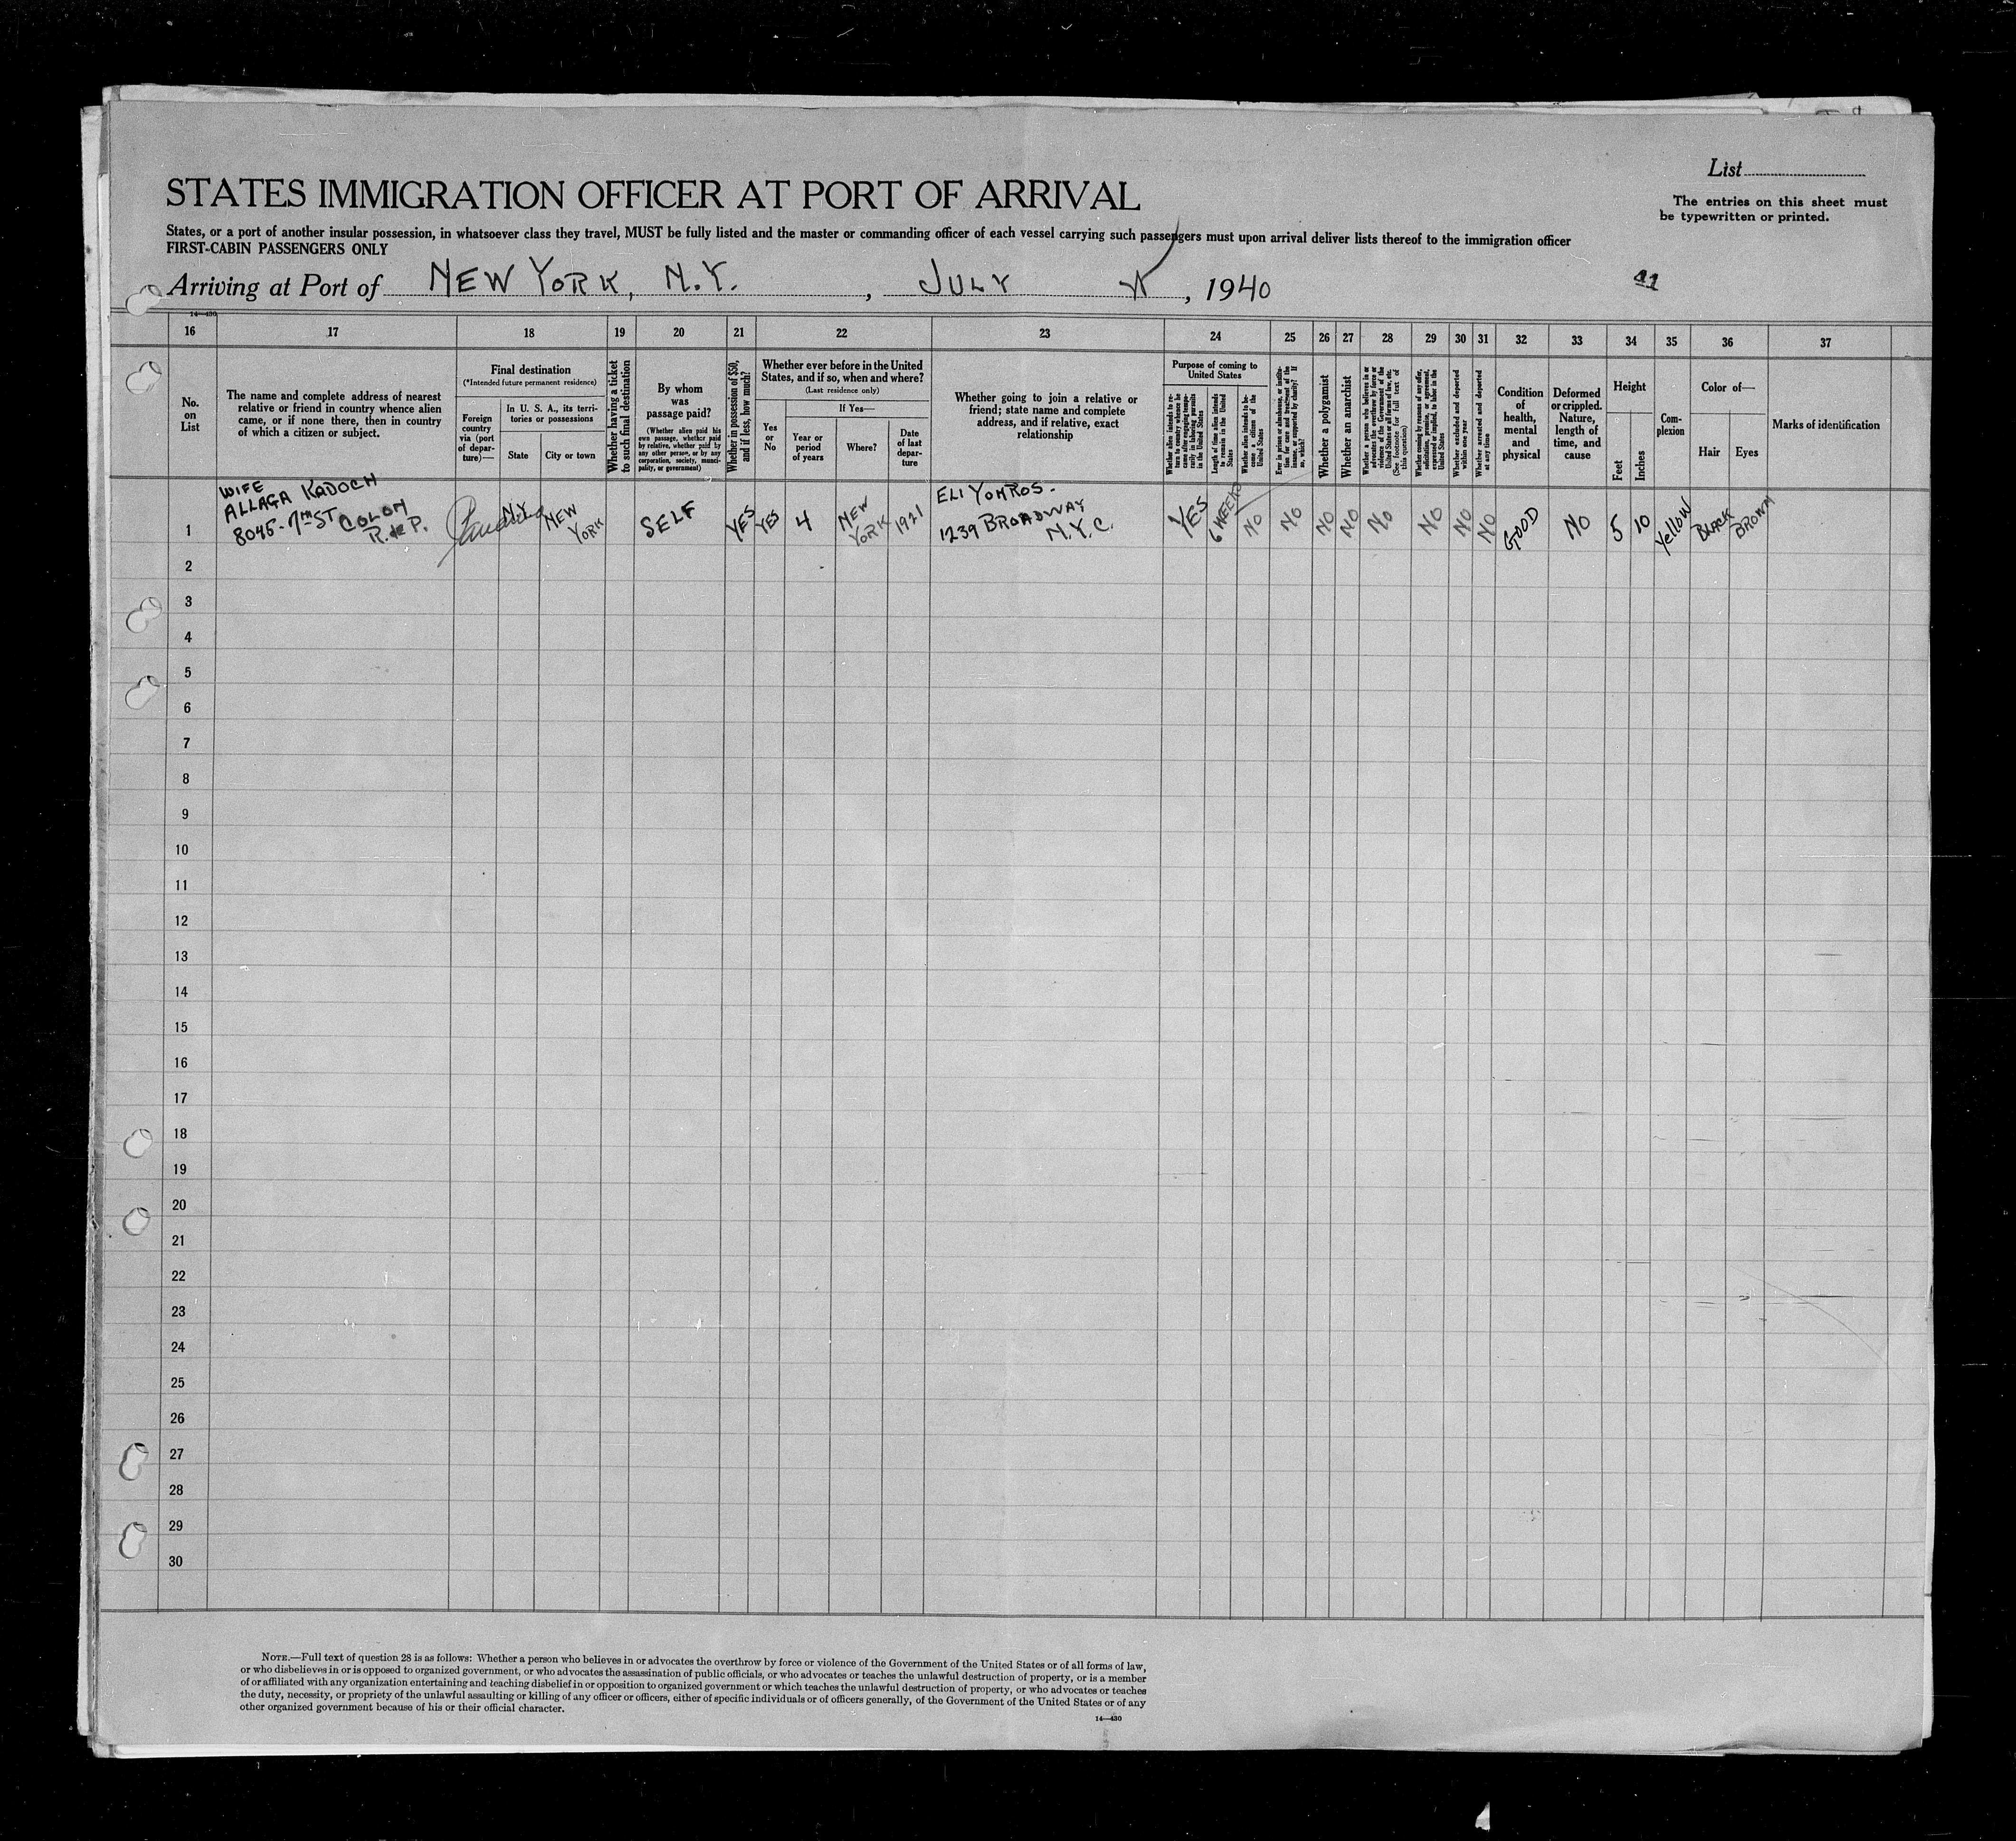 List
The entries on this sheet must
be typewritten or printed.
STATES IMMIGRATION OFFICER AT PORT OF ARRIVAL
States, or a port of another insular possession, in whatsoever class they travel, MUST be fully listed and the master or commanding officer of each vessel carrying such passengers must upon arrival deliver lists thereof to the immigration officer
FIRST-CABIN PASSENGERS ONLY
Arriving at Port of NEW YORK, N.Y. , JULY , 1940
14—430
16 17 18 19 20 21 22 23 24 25 26 27 28 29 30 31 32 33 34 35 36 37
No.
on
List
The name and complete address of nearest
relative or friend in country whence alien
came, or if none there, then in country
of which a citizen or subject.
Final destination
(*Intended future permanent residence)
Foreign
country
via (port
of depar-
ture)—
In U. S. A., its terri-
tories or possessions
State
City or town
Whether having a ticket
to such final destination
By whom
was
passage paid?
(Whether alien paid his
own passage, whether paid
by relative, whether paid by
any other person, or by any
corporation, society, munici-
pality, or government)
Whether in possession of $50,
and if less, how much?
Whether ever before in the United
States, and if so, when and where?
(Last residence only)
Yes
or
No
If Yes—
Year or
period
of years
Where?
Date
of last
depar-
ture
Whether going to join a relative or
friend; state name and complete
address, and if relative, exact
relationship
Purpose of coming to
United States
Whether alien intends to re-
turn to country whence he
came after engaging tempo-
rarily in laboring pursuits
in the United States
Length of time alien intends
to remain in the United
States
Whether alien intends to be-
come a citizen of the
United States
Ever in prison or almshouse, or institu-
tion for care and treatment of the
insane, or supported by charity? If
so, which?
Whether a polygamist
Whether an anarchist
Whether a person who believes in or
advocates the overthrow by force or
violence of the Government of the
United States or all forms of law, etc.
(See footnote for full text of
this question)
Whether coming by reason of any offer,
solicitation, promise, or agreement,
expressed or implied, to labor in the
United States
Whether excluded and deported
within one year
Whether arrested and deported
at any time
Condition
of
health,
mental
and
physical
Deformed
or crippled.
Nature,
length of
time, and
cause
Height
Feet
Inches
Com-
plexion
Color of—
Hair
Eyes
Marks of identification
1
WIFE
ALLAGA KADOCH
8045-7TH ST COLON
R. de P.
N.Y.
NEW
YORK
SELF
YES
YES
4
NEW
YORK
1921
ELI YOHROS-
1239 BROADWAY
N.Y.C.
YES
6 WEEKS
NO
NO
NO
NO
NO
NO
NO
NO
GOOD
NO
5
10
Yellow
BLACK
BROWN
2
3
4
5
6
7
8
9
10
11
12
13
14
15
16
17
18
19
20
21
22
23
24
25
26
27
28
29
30
NOTE.—Full text of question 28 is as follows: Whether a person who believes in or advocates the overthrow by force or violence of the Government of the United States or of all forms of law,
or who disbelieves in or is opposed to organized government, or who advocates the assassination of public officials, or who advocates or teaches the unlawful destruction of property, or is a member
of or affiliated with any organization entertaining and teaching disbelief in or opposition to organized government or which teaches the unlawful destruction of property, or who advocates or teaches
the duty, necessity, or propriety of the unlawful assaulting or killing of any officer or officers, either of specific individuals or of officers generally, of the Government of the United States or of any
other organized government because of his or their official character.
14—430